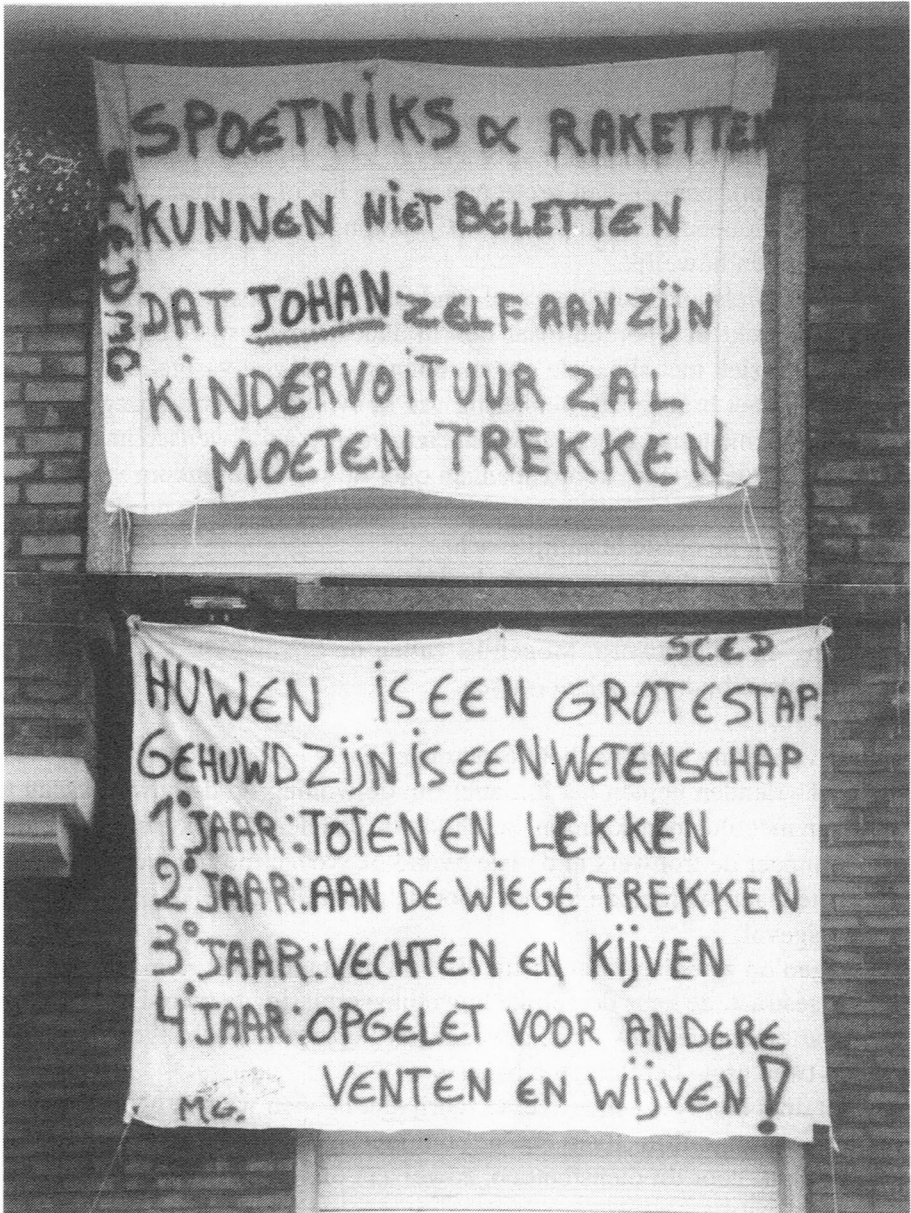 SPOETNIKS & RAKETTEN
KUNNEN NIET BELETTEN
DAT JOHAN ZELF AAN ZIJN
KINDERVOITUUR ZAL
MOETEN TREKKEN
SCED
HUWEN IS EEN GROTE STAP.
GEHUWD ZIJN IS EEN WETENSCHAP
1° JAAR: TOTEN EN LEKKEN
2° JAAR: AAN DE WIEGE TREKKEN
3° JAAR: VECHTEN EN KIJVEN
4° JAAR: OPGELET VOOR ANDERE
VENTEN EN WIJVEN!
MG.